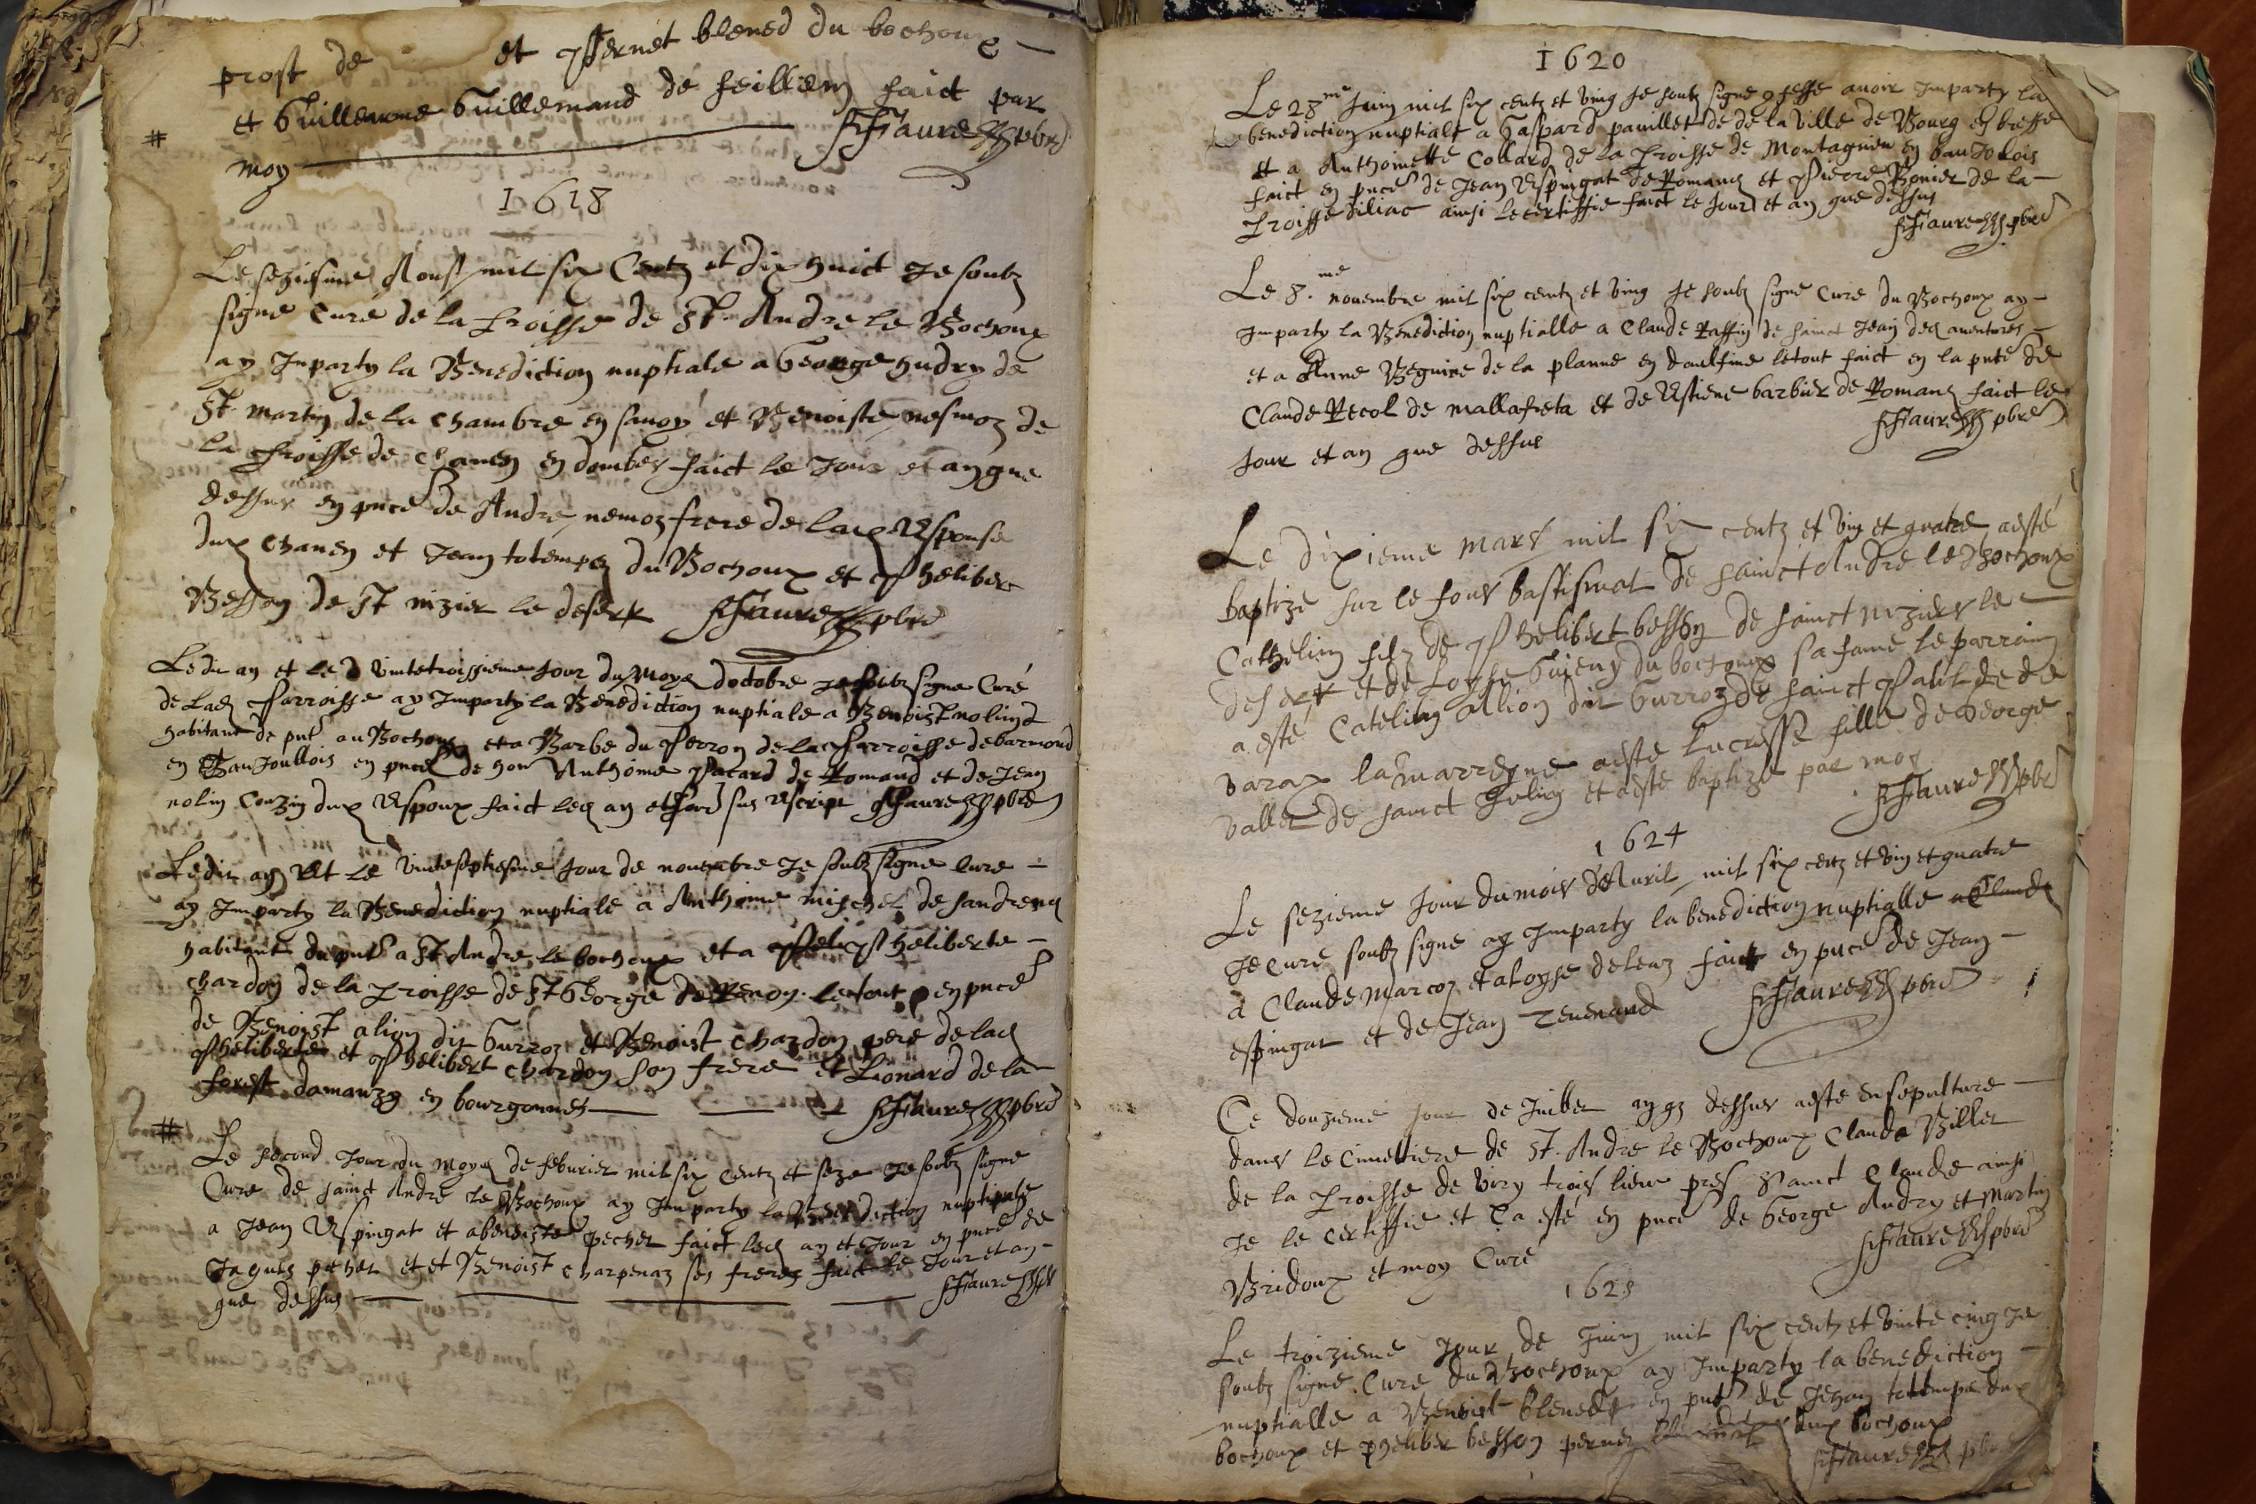 prost de et Pernet blened du bochoux
et Guillemme Guillemand de feillien faict par
moy FFaure pbre
1618
Le seziesme Aoust mil six Centz et dix huict Je soubz
signe Curé de la proisse de St. Andre le Bochoux
ay Imparty la Benediction nuptiale a George hudry de
St. Martin de la Chambre en savoy et Benoiste nesmoz de
la proisse de Chanen en dombes faict le Jour et an que
dessus en pnce de Andre nemoz frere de lad Espouse
dud Chanen et Jean totempez du Bochoux et Pheliber
Besson de St nizier le desert FFaure pbre
Ledit an et le vintetroissieme Jour du Moys doctobre Je soubz signe Curé
de Lad parroisse ay Imparty la Benediction nuptiale a Benoist nolin
habitant de pnt au Bochoux et a Barbe du Perron de la Parroisse de
en Baujoullois en pnce de hon Anthoine Pacard de Romand et de Jean
nolin Couzin dud Espoux faict led an et Jour sus Escript FFaure pbre
Ledit an Et le vinteseptiesme Jour de novembre Je soubz signe Cure
ay Imparty la Benediction nuptiale a Anthoine michel de
habitant du pnt a St Andre le bochoux et a Pheliberte
Chardon de la proisse de St George de Renon. le tout en pnce
de Benoist alion dit Gurroz et Benoist Chardon pere de lad
Pheliberte et Phelibert Chardon son frere et Lionard de la
forest damanzy en bourgonnes FFaure pbre
Le second Jour du moys de febvrier mil six Centz et seze Je soubz signe
Cure de sainct Andre le Bochoux ay Imparty la Benediction nuptiale
a Jean Espingat et a benoiste pechet faict led an et Jour en pnce de
Jaques pechet et et Benoist Charpenaz ses freres faict le Jour et an
que dessus FFaure
1620
Le 28me Juin mil six centz et ving Je soubz signe confesse avoir Imparty la
benediction nuptiale a Gaspard pauillet de de la ville de Bourg en bresse
et a Anthoinette Collard de la proisse de Montagnieu en baujolois
faict en pnce de Jean Espingat de Romand et Pierre Bonier de la
proisse diliac ainsi le certiffie faict le Jour et an que dessus
FFaure pbre
Le 8.me novembre mil six centz et ving Je soubz signe Cure du Bochoux ay
Imparty la Benediction nuptialle a Claude Raffin de sainct Jean des aventures
et a Anne Beguine de la planne en daulfine le tout faict en la pnte de
Claude Recol de mallafreta et de Estiene barbier de Romand faict le
Jour et an que dessus FFaure pbre
Le dixieme mars mil six centz et vin et quatre aesté
baptize sur le fons bastismal de sainct Andre le Bochoux
Cathelin filz de Phelibert besson de sainct niziers le
desert et de Loyse Guieny du bochoux sa fame le parrain
a esté Catelin allion dit Gurroz de sainct Paul de de
varax la marreyne aeste Lucresse fille de George
vallet de sainct Julin et aeste baptize par moy
FFaure pbre
1624
Le sezieme Jour du mois d'Avril mil six centz et vin et quatre
Je cure soubz signe ay Imparty la benediction nuptialle
a Claude Marcoz et a Loyse deleaz faict en pnce de Jean
espingat et de Jean Tevenard FFaure pbre
Ce douzieme Jour de Juilet dessus aeste ensepulture
dans le Cimettiere de St. Andre le Bochoux Claude Billet
de la proisse de viry trois lieu pres Sainct Claude ainsi
Je le certiffie et Ça esté en pnce de George Audry et Martin
Bridoux et moy Curé FFaure pbre
1625
Le troizieme Jour de Juin mil six centz et vinte cinq Je
soubz signe Cure du Bochoux ay Imparty la benediction
nuptialle a Benoist blened en pnt de Jehan totempe du
bochoux et pheliber besson pernet dud bochoux
FFaure pbre